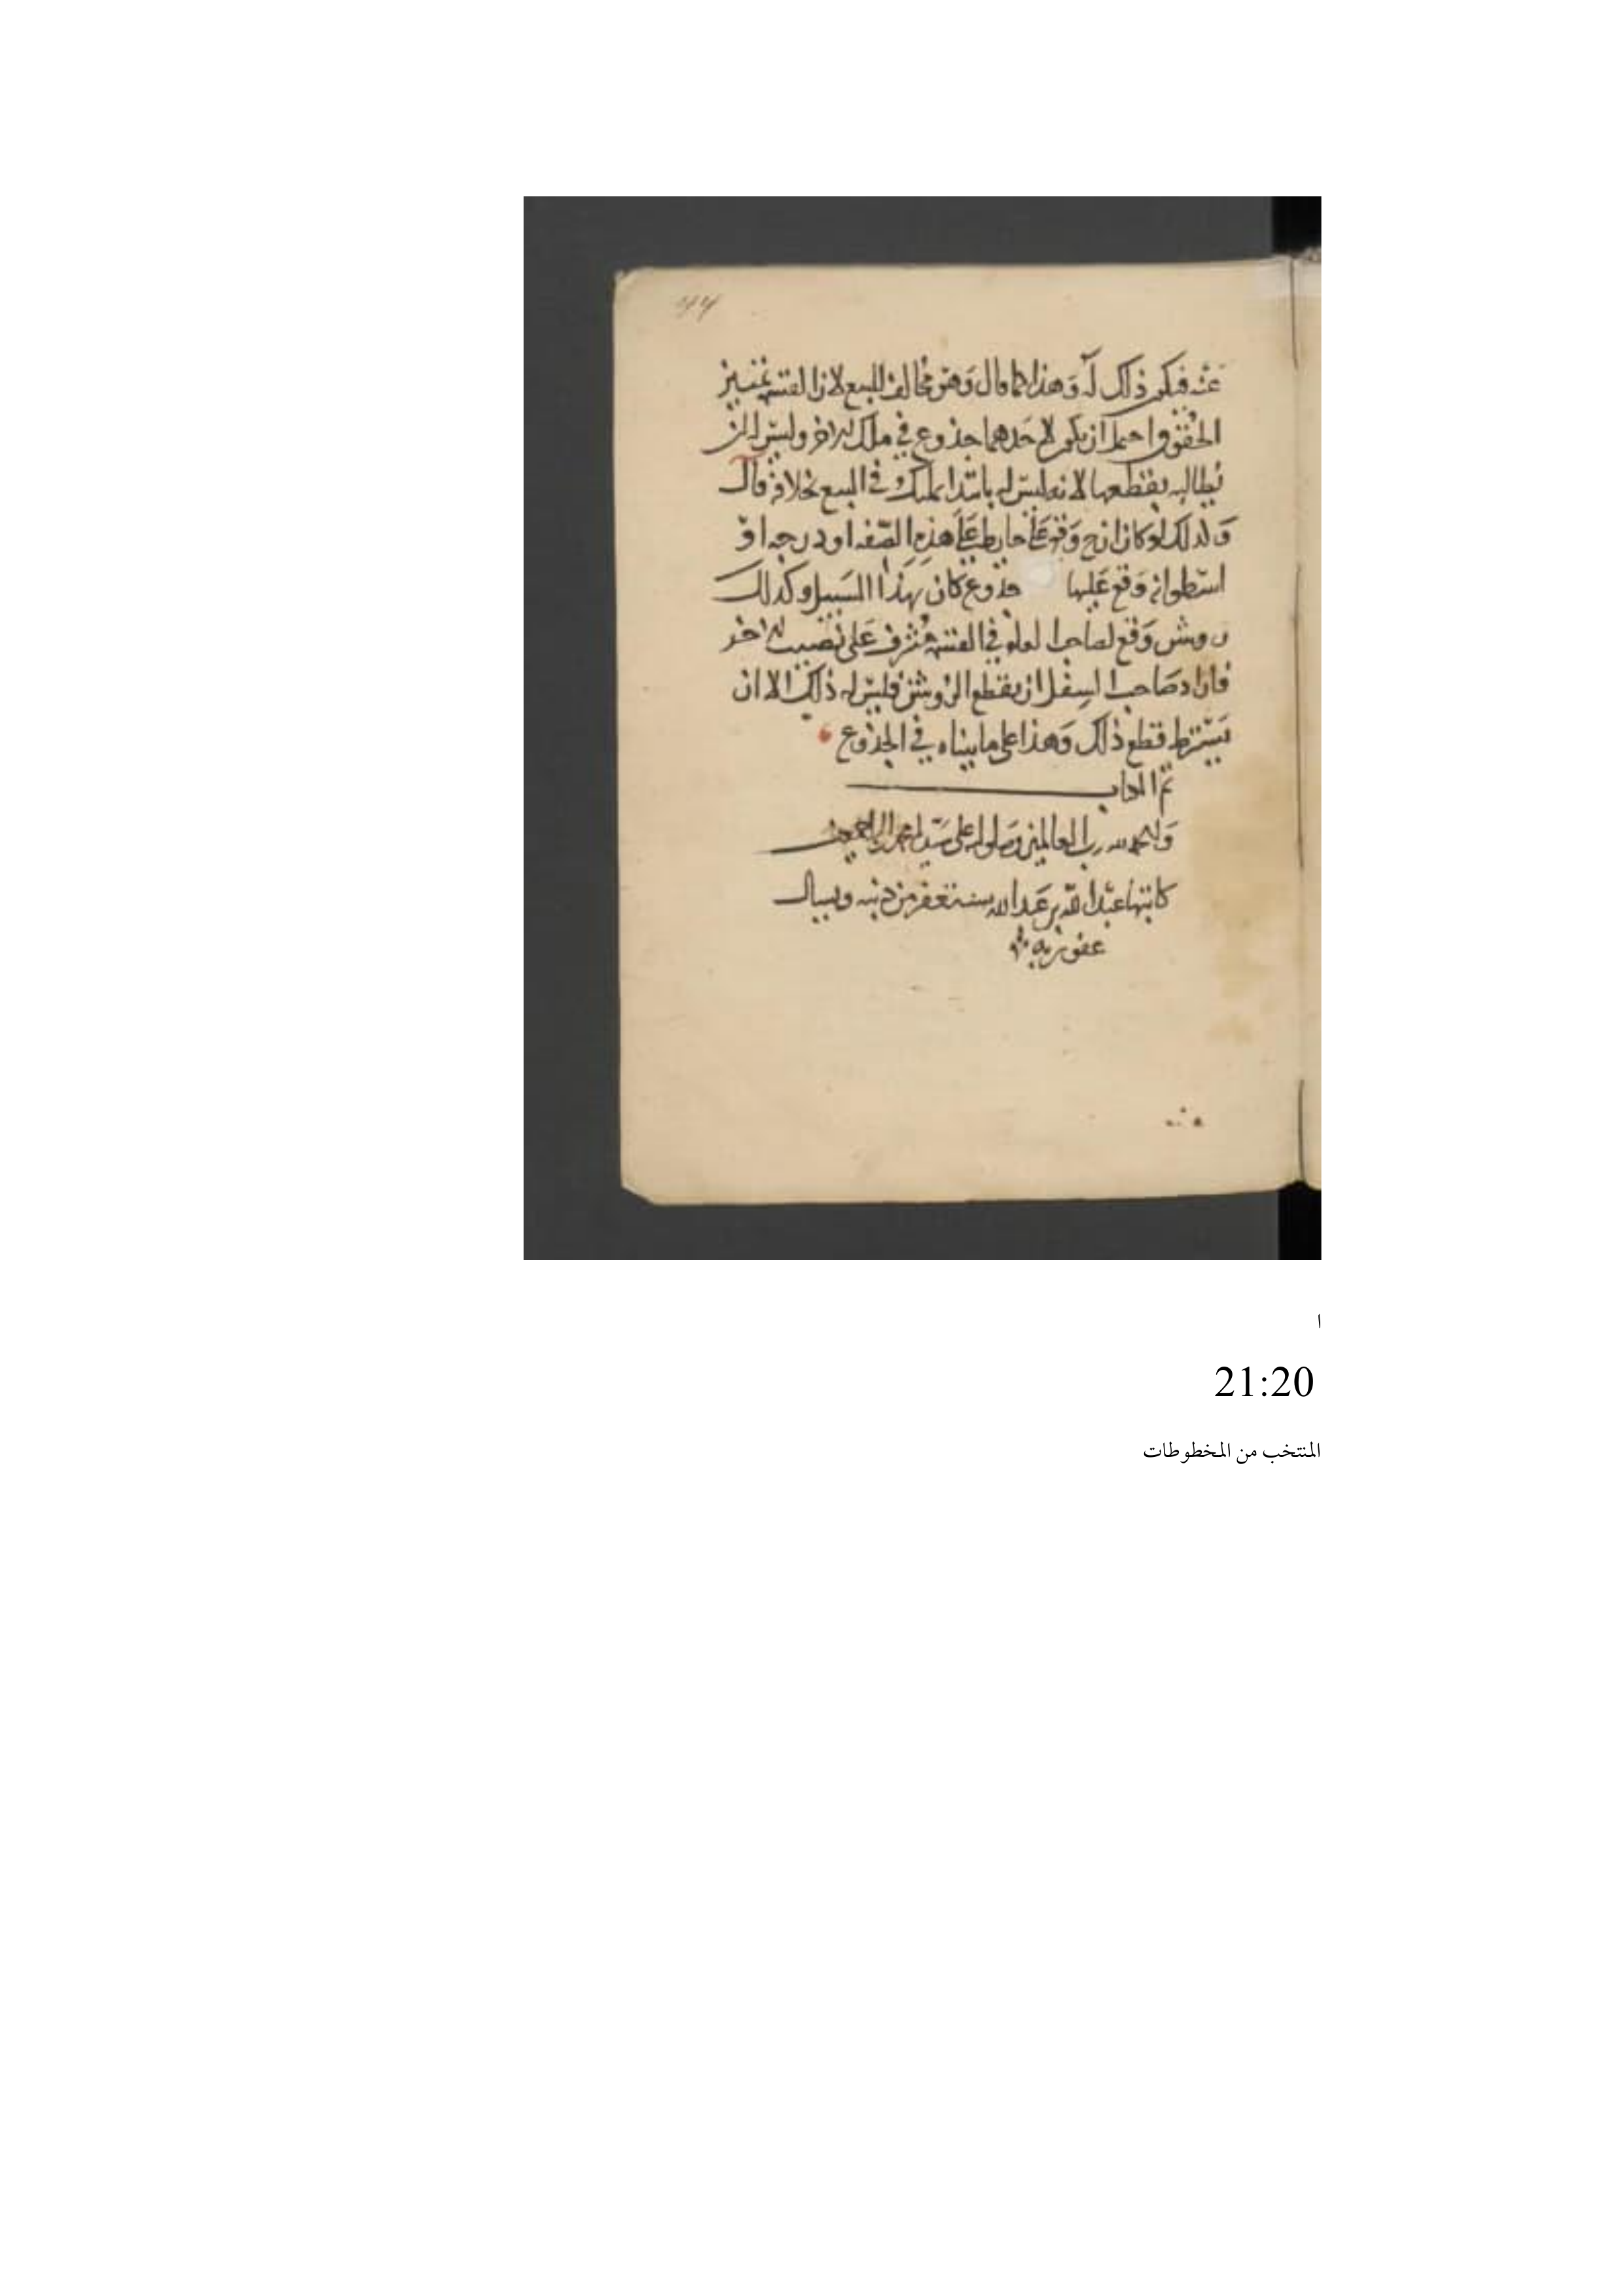 44
عنه فيكون ذلك له وهذا كما قال وهو مخالف للبيع لان القسمة تمييز
الحقوق واحتمل ان يكون لاحدهما جذوع في ملك الاخر وليس له ان
يطالبه بقطعها لانه ليس له بابتدا تمليك وفي البيع بخلافه قال
وكذلك لو كان ازج وقع على حايط على هذه الصفه او درجه او
اسطوانه وقع عليها جذوع كان بهذا السبيل وكذلك
روشن وقع لصاحب العلو في القسمه مشرف على نصيب الاخر
فاراد صاحب السفل ان يقطع الروشن فليس له ذلك الا ان
يشترط قطع ذلك وهذا على ما بيناه في الجذوع
تم الكتاب
والحمد لله رب العالمين وصلواته على سيدنا محمد واله اجمعين
كاتبها عبد الله بن عبد الله يستغفر من ذنبه ويسال
عفو ربه
ا
21:20
المنتخب من المخطوطات